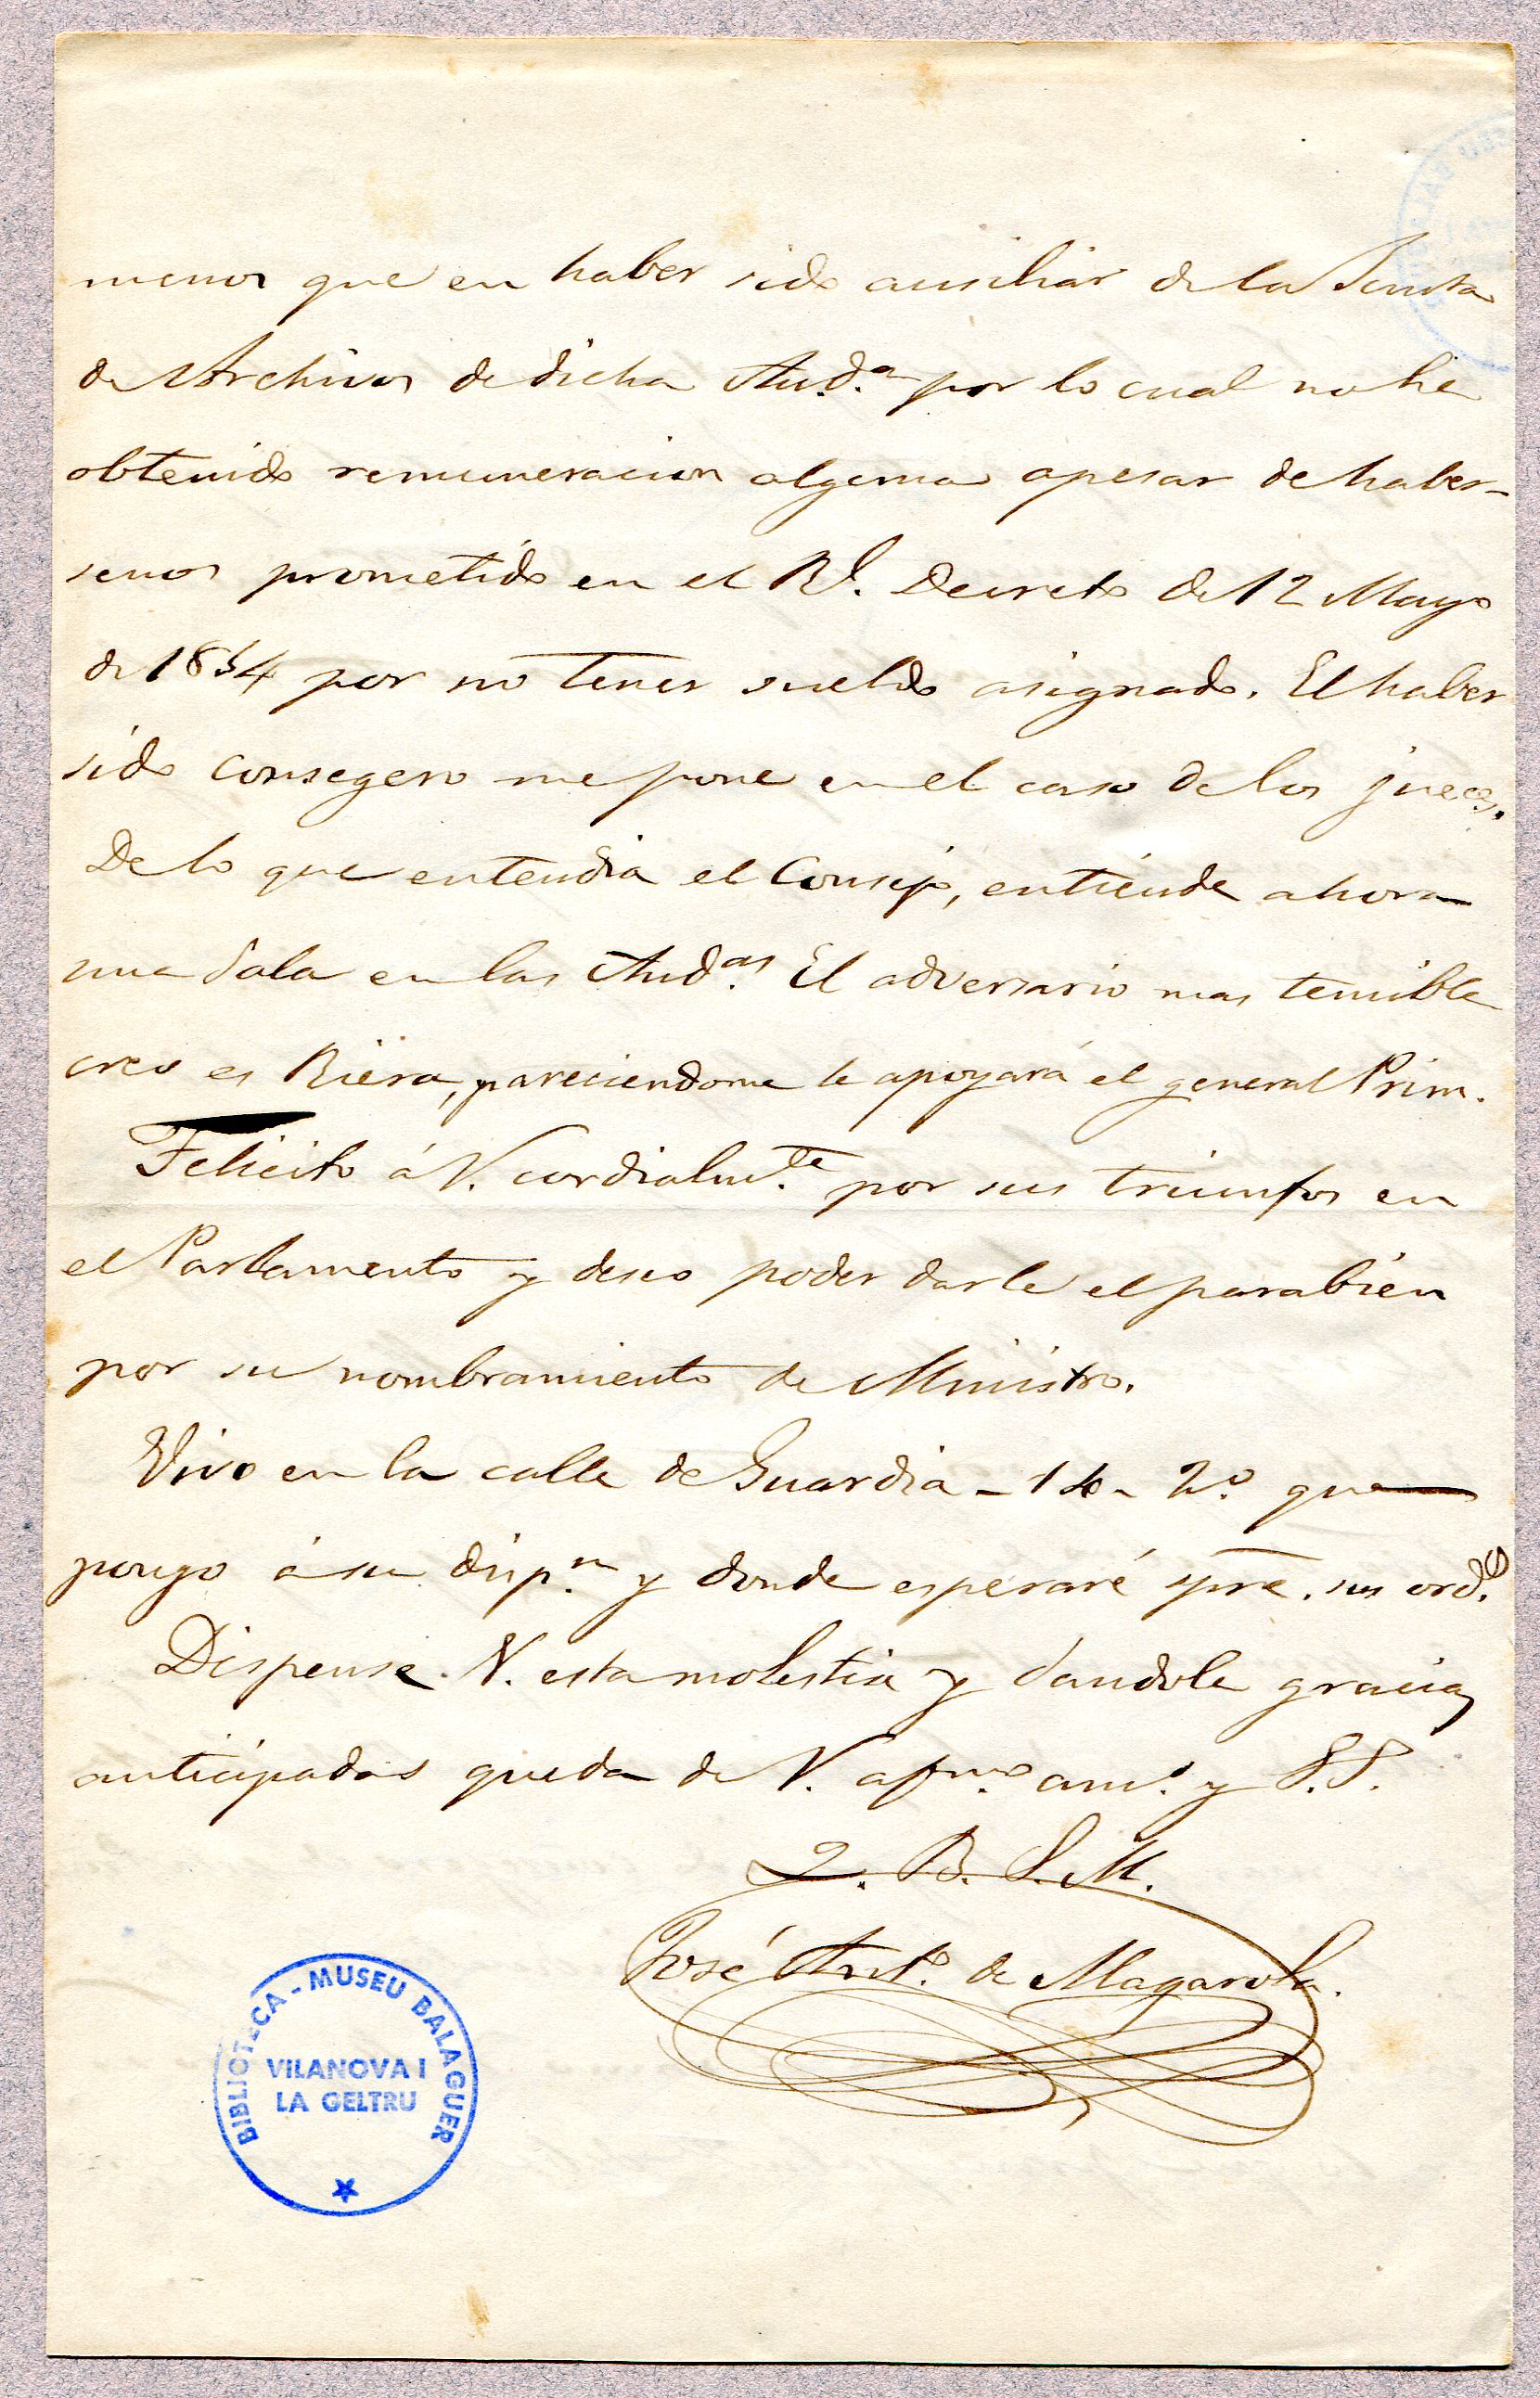 menos que en haber sido ausiliar de la Junta
de Archivos de dicha Aud.ª por lo cual no he
obtenido remuneracion alguna apesar de haber-
senos prometido en el Rl. Decreto de 12 Mayo
de 1854 por no tener sueldo asignado. El haber
sido consegero me pone en el caso de los jueces.
De lo que entendia el Consejo, entiende ahora
una Sala en las Aud.as El adversario mas temible
creo es Riera, pareciendome le apoyará el general Prim.
Felicito á V. cordialm.te por sus triunfos en
el Parlamento y deseo poder darle el parabien
por su nombramiento de Ministro.
Vivo en la calle de Guardia - 14 - 2.º que
pongo á su disp.n y donde esperaré spre. sus ord.s
Dispense V. esta molestia y dandole gracias
anticipadas queda de V. afmo. am.º y S.S.
Q. B. S. M.
José Ant.º de Magarola.
BIBLIOTECA - MUSEU BALAGUER
VILANOVA I
LA GELTRU